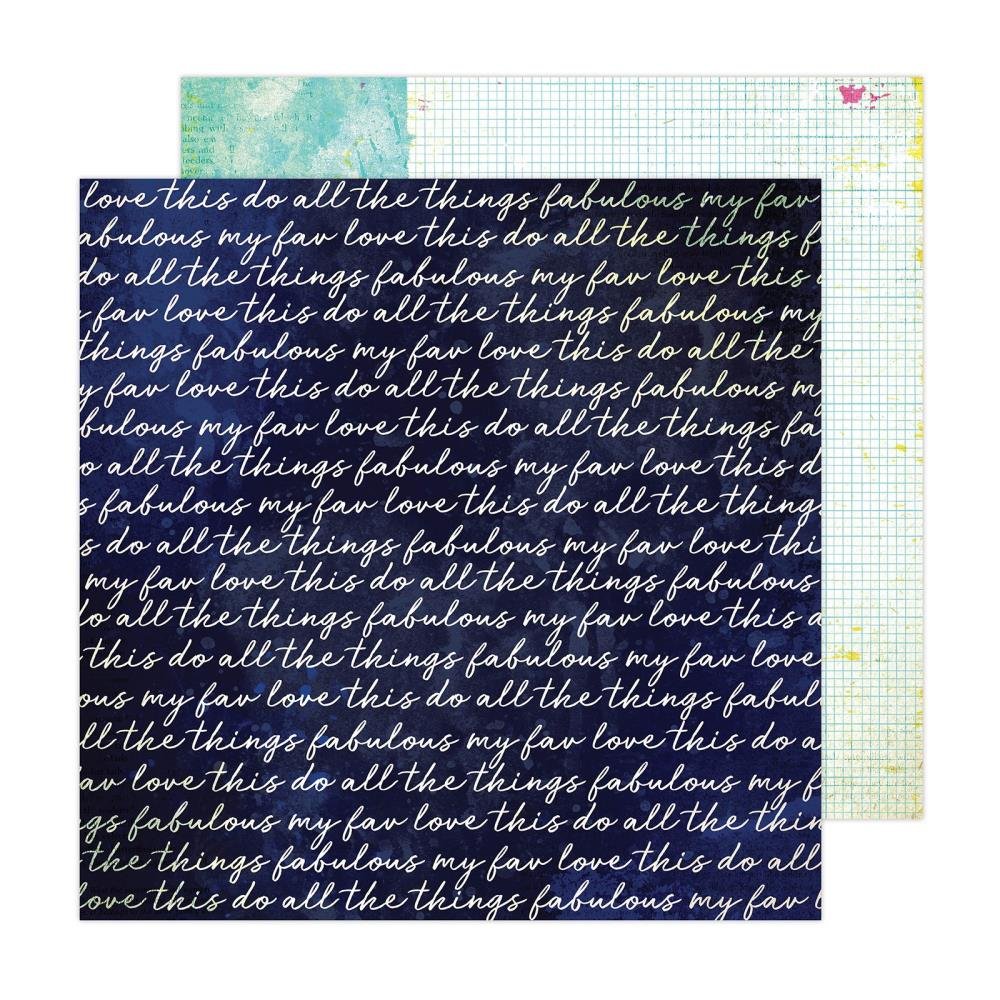 love this do all the things fabulous my fav
abulous my fav love this do all the things f
do all the things fabulous my fav love this
fav love this do all the things fabulous my
things fabulous my fav love this do all the
y fav love this do all the things fabulous m
bulous my fav love this do all the things fa
o all the things fabulous my fav love this d
s fabulous my fav love this do all the thing
s do all the things fabulous my fav love thi
my fav love this do all the things fabulous
do all the things fabulous my fav love this d
this do all the things fabulous my fav love
ous my fav love this do all the things fabul
ll the things fabulous my fav love this do a
av love this do all the things fabulous my f
gs fabulous my fav love this do all the thin
the things fabulous my fav love this do all
love this do all the things fabulous my fav l